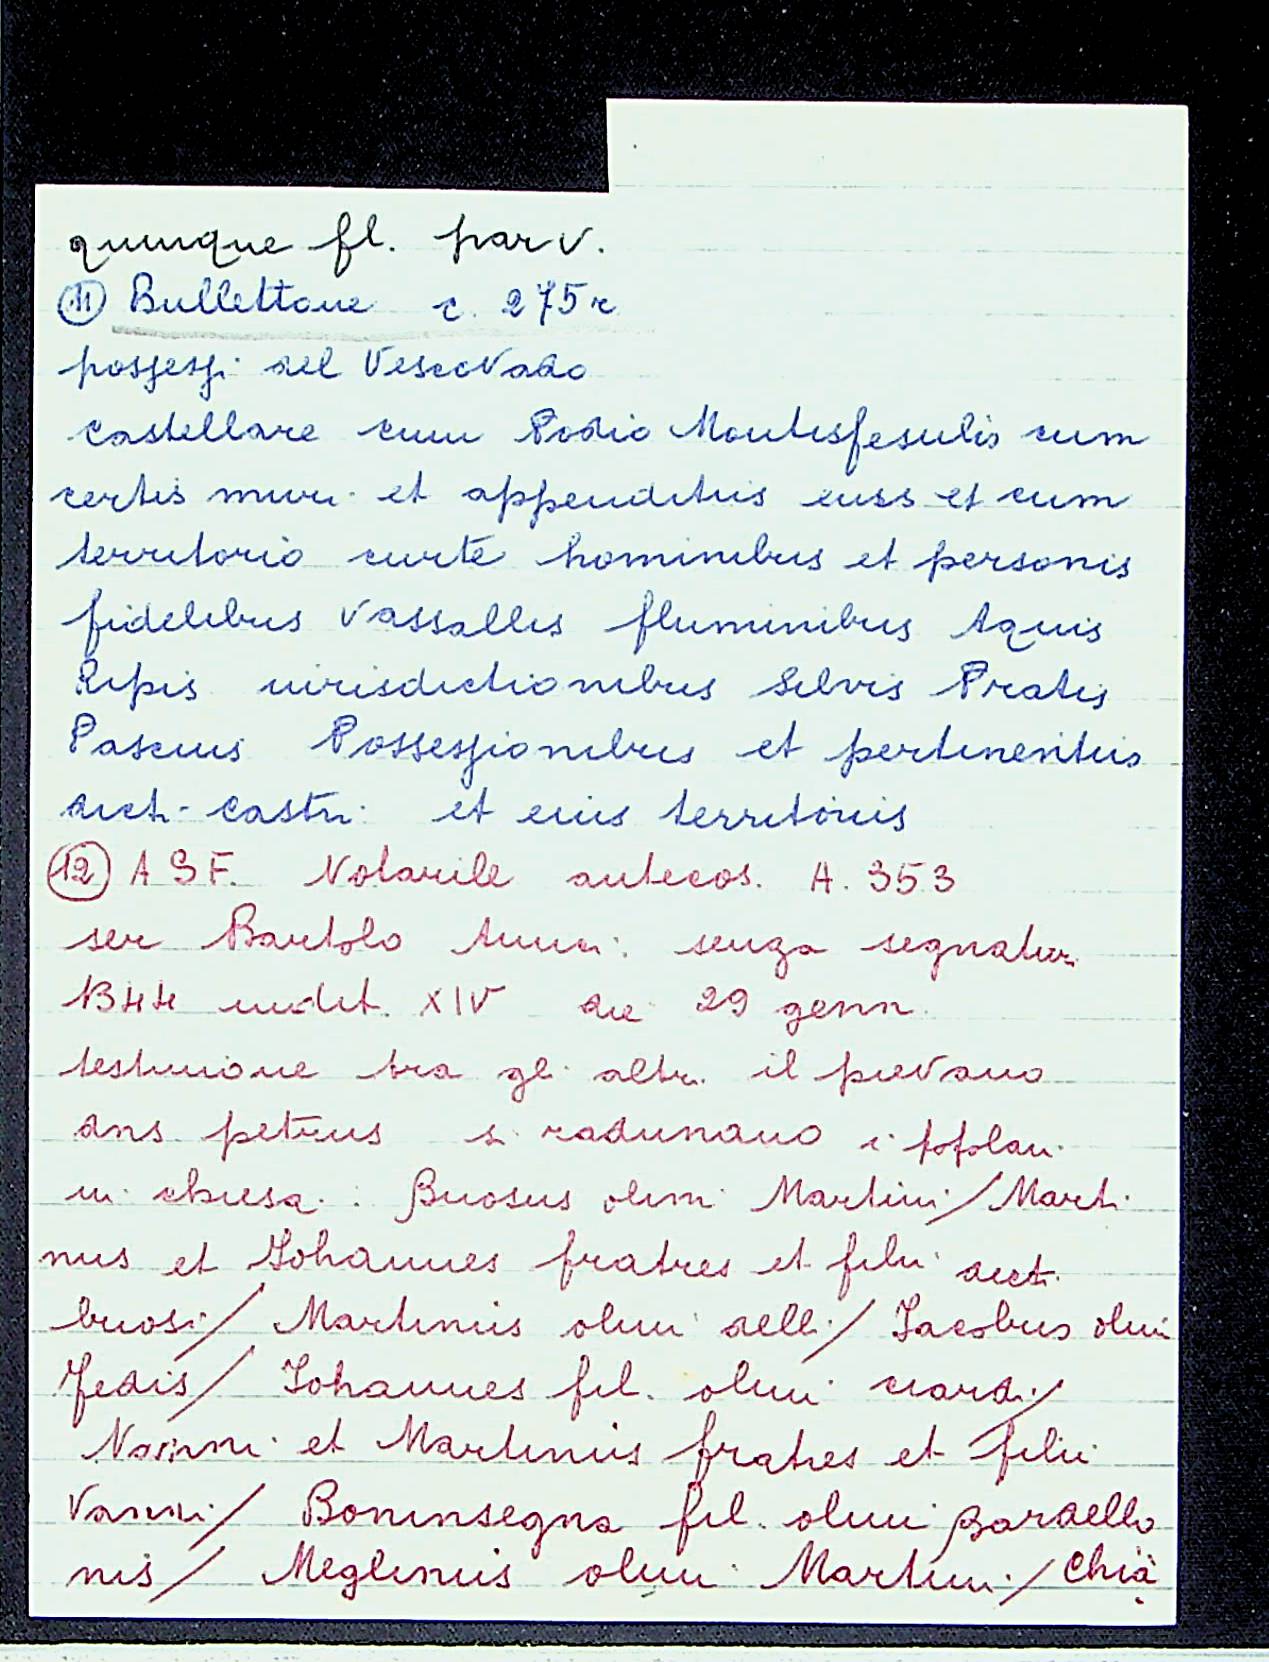 quinque fl. parv.
(11) Bullettone c. 275 r
possessi del Vescovado
castellare cum Podio Montisfesulis cum
certis muri et appenditiis eius et cum
territorio curte hominibus et personis
fidelibus vassallis fluminibus Aquis
Ripis iurisdictionibus Silvis Pratis
Pascuis Possessionibus et pertinentiis
dict. castri et eius territoriis
(12) ASF. Notarile antecos. A. 353
ser Bartolo senza segnatur.
1344 indit. XIV die 29 genn.
testimone tra gli altri il pievano
dns petrus si radunano i popolani
in chiesa: Buosus olim Martini / Marti
nus et Johannes fratres et filii dict.
buosi / Martinus olim delli / Jacobus olim
Fedis / Johannes fil. olim ciardi /
Nanni et Martinus fratres et filii
Vanni / Boninsegna fil. olim Bardello
nis / Meglinus olim Martini / Chia